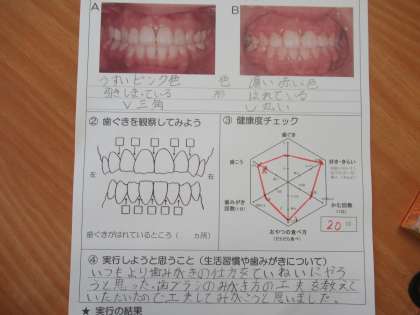 A
B
うすいピンク色 色 濃い赤い色
引きしまっている 形 はれている
V 三角 U 丸い
② 歯ぐきを観察してみよう
③ 健康度チェック
歯ぐき
歯こう
好き・きらい
左 右
左 右
歯みがき
回数(1日)
かむ回数
おやつの食べ方
(だらだら食べ)
20
歯ぐきがはれているところ( カ所)
④ 実行しようと思うこと(生活習慣や歯みがきについて)
いつもより歯みがきの仕方をていねいにやろ
うと思った。歯ブラシのみがき方の工夫を教えて
いただいたので工夫してみがこうと思いました。
★ 実行の結果